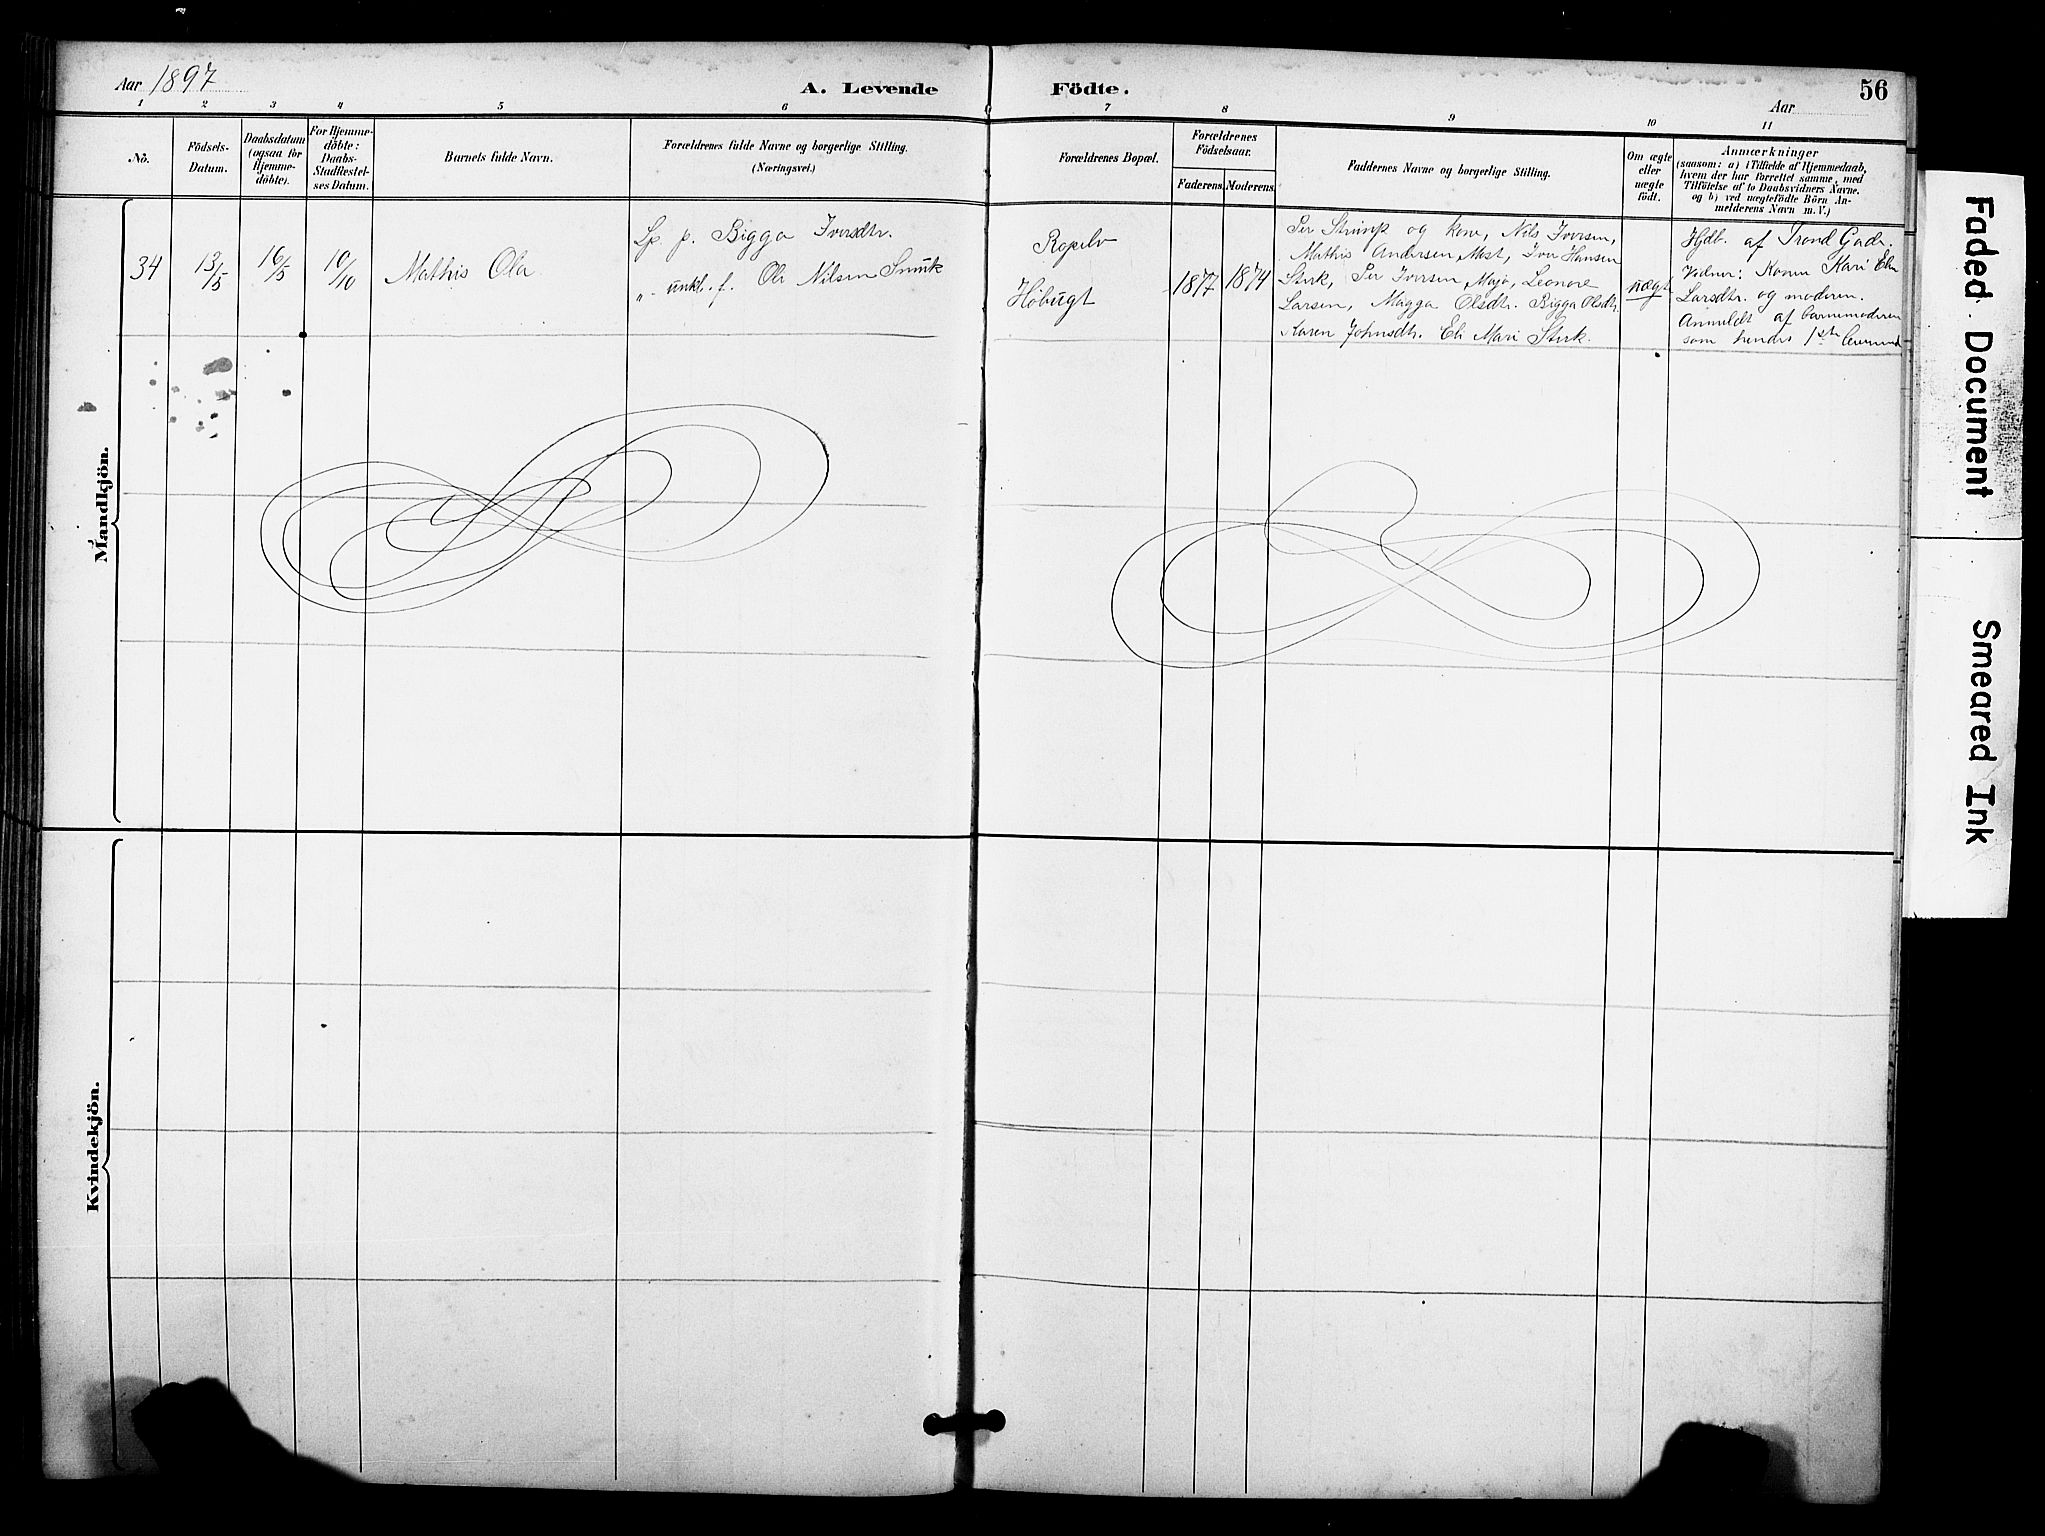 Aar 1897
A. Levende
Födte.
Aar
56
1 2 3 4 5 6 7 8 9 10 11
No.
Födsels-
Datum.
Daabsdatum
(ogsaa for
Hjemme-
döbte).
For Hjemme-
döbte:
Daabs-
Stadfæstel-
ses Datum.
Barnets fulde Navn.
Forældrenes fulde Navne og borgerlige Stilling.
(Næringsvei.)
Forældrenes Bopæl.
Forældrenes
Födselsaar.
Faderens. Moderens.
Faddernes Navne og borgerlige Stilling.
Om ægte
eller
uægte
födt.
Anmærkninger
(saasom: a) i Tilfælde af Hjemmedaab,
hvem der har forrettet samme, med
Tilföielse af to Daabsvidners Navne,
og b) ved uægtefödte Börn An-
melderens Navn m. V.)
Mandkjön.
34
13/5
16/5
10/10
Mathis Ola
Lp. p. Bigga Iversdtr.
" unkl. f. Ole Nilsen Smuk
Ropelv
Höbugt
1877
1874
Per Strimp og kone, Nils Iversen,
Mathis Andersen Mst, Iver Hansen
Stirk, Per Iversen Majo, Leonore
Larsen, Magga Olsdtr. Bigga Olsdtr.
Karen Johnsdtr. Eli Mari Stirk.
uægte
Hjdb. af Trond Gade.
Vidner: Konen Kari Elen
Larsdtr. og moderen.
Anmeldt af barnemoderen
som hendes 1ste
Kvindekjön.
Faded Document
Smeared Ink